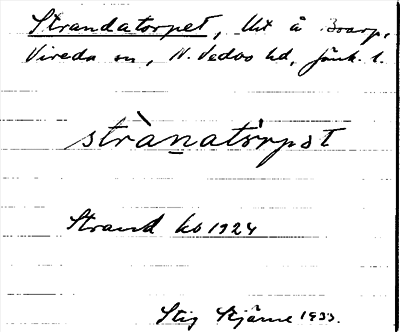 Strandatorpet, lht å Boarp,
Vireda sn, N. Vedbo hd, Jönk. l.
stràn̲atòrpət
Strand kb 1924
Stig Stjärne 1933.